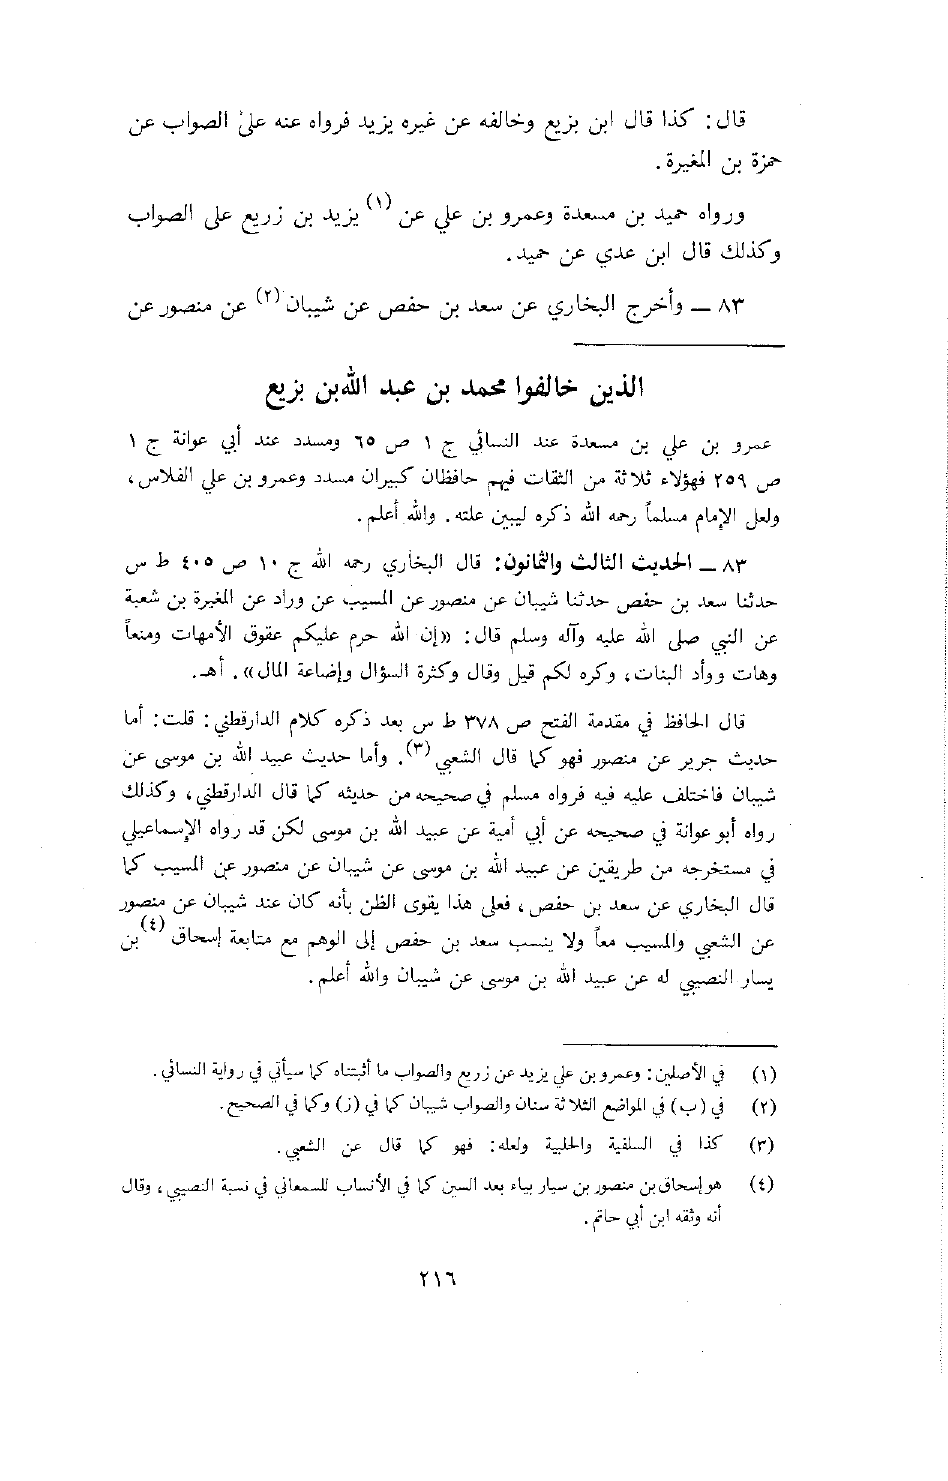 قال: كذا قال ابن بزيع وخالفه عن غيره يزيد فرواه عنه على الصواب عن
حمزة بن المغيرة.
ورواه حميد بن مسعدة وعمرو بن علي عن (١) يزيد بن زريع على الصواب
وكذلك قال ابن عدي عن حميد.
٨٣ ــ وأخرج البخاري عن سعد بن حفص عن شيبان (٢) عن منصور عن
الذين خالفوا محمد بن عبد الله بن بزيع
عمرو بن علي بن مسعدة عند النسائي ج ١ ص ٦٥ ومسدد عند أبي عوانة ج ١
ص ٢٥٩ فهؤلاء ثلاثة من الثقات فيهم حافظان كبيران مسدد وعمرو بن علي الفلاس،
ولعل الإمام مسلماً رحمه الله ذكره ليبين علته. والله أعلم.
٨٣ ــ الحديث الثالث والثمانون: قال البخاري رحمه الله ج ١٠ ص ٤٠٥ ط س
حدثنا سعد بن حفص حدثنا شيبان عن منصور عن المسيب عن وراد عن المغيرة بن شعبة
عن النبي صلى الله عليه وآله وسلم قال: «إن الله حرم عليكم عقوق الأمهات ومنعاً
وهات ووأد البنات، وكره لكم قيل وقال وكثرة السؤال وإضاعة المال». أهـ.
قال الحافظ في مقدمة الفتح ص ٣٧٨ ط س بعد ذكره كلام الدارقطني: قلت: أما
حديث جرير عن منصور فهو كما قال الشعبي (٣). وأما حديث عبيد الله بن موسى عن
شيبان فاختلف عليه فيه فرواه مسلم في صحيحه من حديثه كما قال الدارقطني، وكذلك
رواه أبو عوانة في صحيحه عن أبي أمية عن عبيد الله بن موسى لكن قد رواه الإسماعيلي
في مستخرجه من طريقين عن عبيد الله بن موسى عن شيبان عن منصور عن المسيب كما
قال البخاري عن سعد بن حفص، فعلى هذا يقوى الظن بأنه كان عند شيبان عن منصور
عن الشعبي والمسيب معاً ولا ينسب سعد بن حفص إلى الوهم مع متابعة إسحاق (٤) بن
يسار النصيبي له عن عبيد الله بن موسى عن شيبان والله أعلم.
(١) في الأصلين: وعمرو بن علي يزيد عن زريع والصواب ما أثبتناه كما سيأتي في رواية النسائي.
(٢) في (ب) في المواضع الثلاثة سنان والصواب شيبان كما في (ز) وكما في الصحيح.
(٣) كذا في السلفية والحلبية ولعله: فهو كما قال عن الشعبي.
(٤) هو إسحاق بن منصور بن سيار بياء بعد السين كما في الأنساب للسمعاني في نسبة النصيبي، وقال
أنه وثقه ابن أبي حاتم.
٢١٦